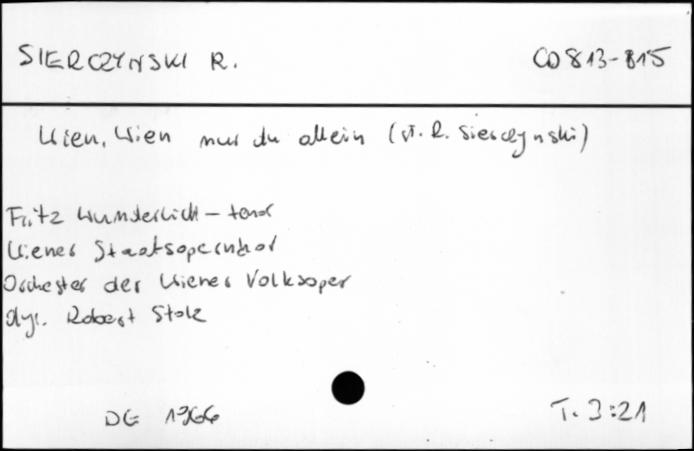 SIERCZYNSKI R. CD 813-815
Wien, Wien nur du allein (sł. R. Sierczynski)
Fritz Wunderlich - tenor
Wiener Staatsopernchor
Orchester der Wiener Volksoper
dyr. Robert Stolz
DG 1966 T. 3:21